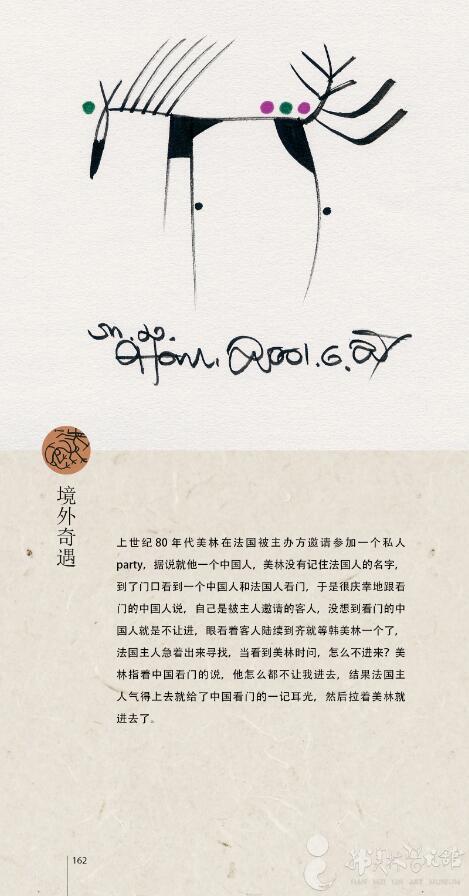 境外奇遇
上世纪80年代美林在法国被主办方邀请参加一个私人
party，据说就他一个中国人，美林没有记住法国人的名字，
到了门口看到一个中国人和法国人看门，于是很庆幸地跟看
门的中国人说，自己是被主人邀请的客人，没想到看门的中
国人就是不让进，眼看着客人陆续到齐就等韩美林一个了，
法国主人急着出来寻找，当看到美林时问，怎么不进来？美
林指着中国看门的说，他怎么都不让我进去，结果法国主
人气得上去就给了中国看门的一记耳光，然后拉着美林就
进去了。
162
韩美林艺术馆
HAN MEI LIN ART MUSEUM